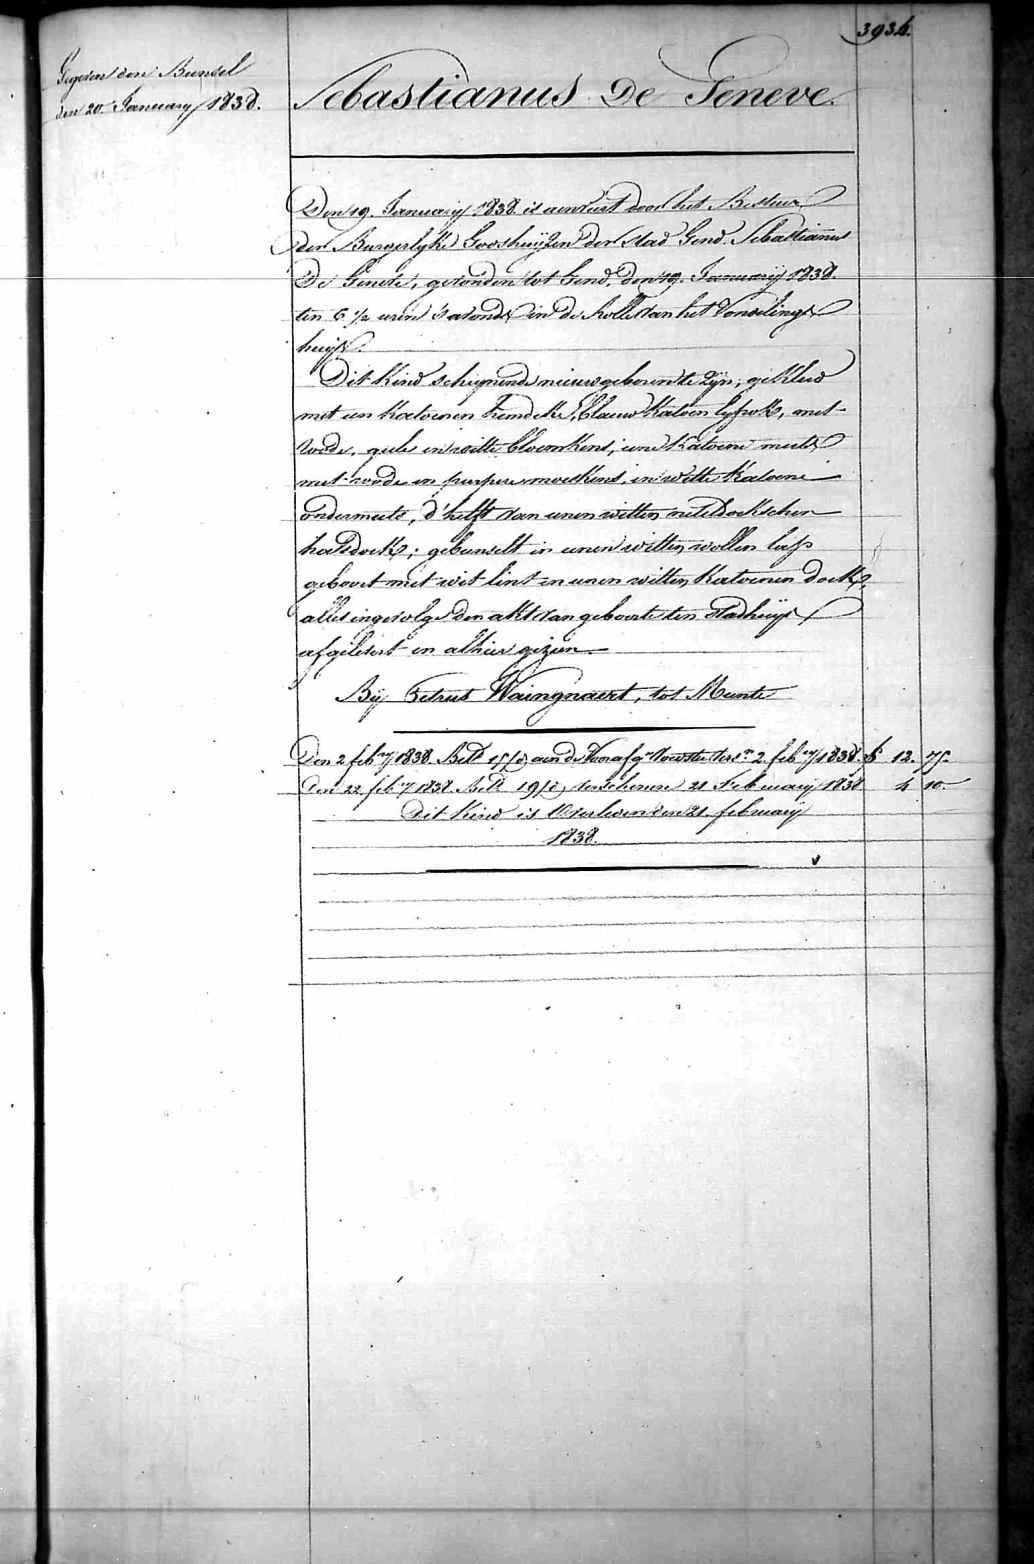 3934.
Gegeven den Bunsel
den 20. January 1838.
Sebastianus De Geneve.
Den 19. January 1838 is aenveirt door het Bestuur
der Burgerlyke Godshuijzen der Stad Gend. Sebastianus
De Geneve, gevonden tot Gend, den 19. Januarij 1838.
ten 6 1/2 uren 's avonds in de rolle van het Vondelings
huijs.
Dit Kind schijnende nieuwgeboren te zijn, gekleed
met een katoenen hemdeke, blauw katoen lyfrok, met
roode, geele en witte bloemkens; eene katoene muts
met roode en purpere moeskens, en witte katoene
ondermuts, d'helft van eenen witten neteldoekschen
halsdoek; gebunselt in eenen witten wollen laps
geboort met wit lint en eenen witten katoenen doek,
alles ingevolge den akt van geboorte ten Stadhuijs
afgelevert en alhier gezien.
Bij Petrus Waingnaert, tot Munte
Den 2 feb.ry 1838. Bett 15/d aen de Voorafg.e Voedster vers.n 2. feb.ry 1838. f 12. 75.
Den 22. feb.ry 1838. Bett 19/d verschenen 21 February 1838 4 10.
Dit Kind is Overleden den 21. february
1838.